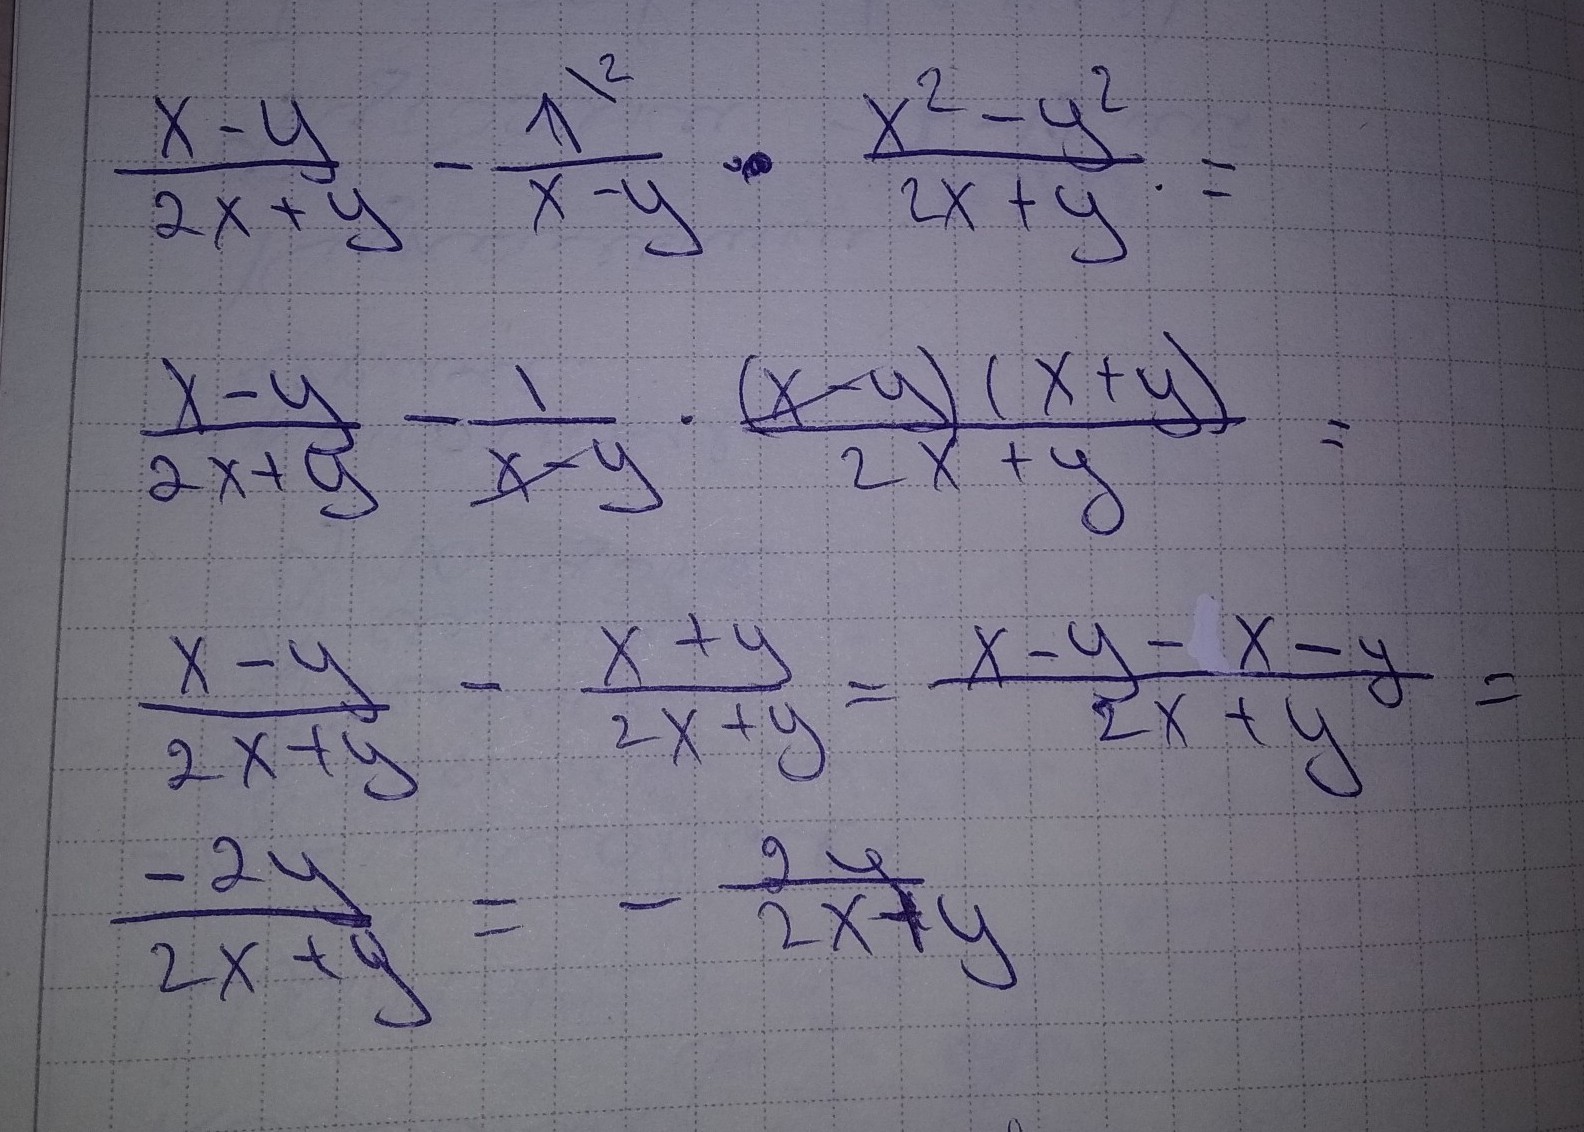 \frac{x-y}{2x+y} - \frac{1^{\backslash 2}}{x-y} \cdot \frac{x^2-y^2}{2x+y} \cdot =
\frac{x-y}{2x+y} - \frac{1}{x-y} \cdot \frac{(x-y)(x+y)}{2x+y} =
\frac{x-y}{2x+y} - \frac{x+y}{2x+y} = \frac{x-y-x-y}{2x+y} =
\frac{-2y}{2x+y} = - \frac{2y}{2x+y}